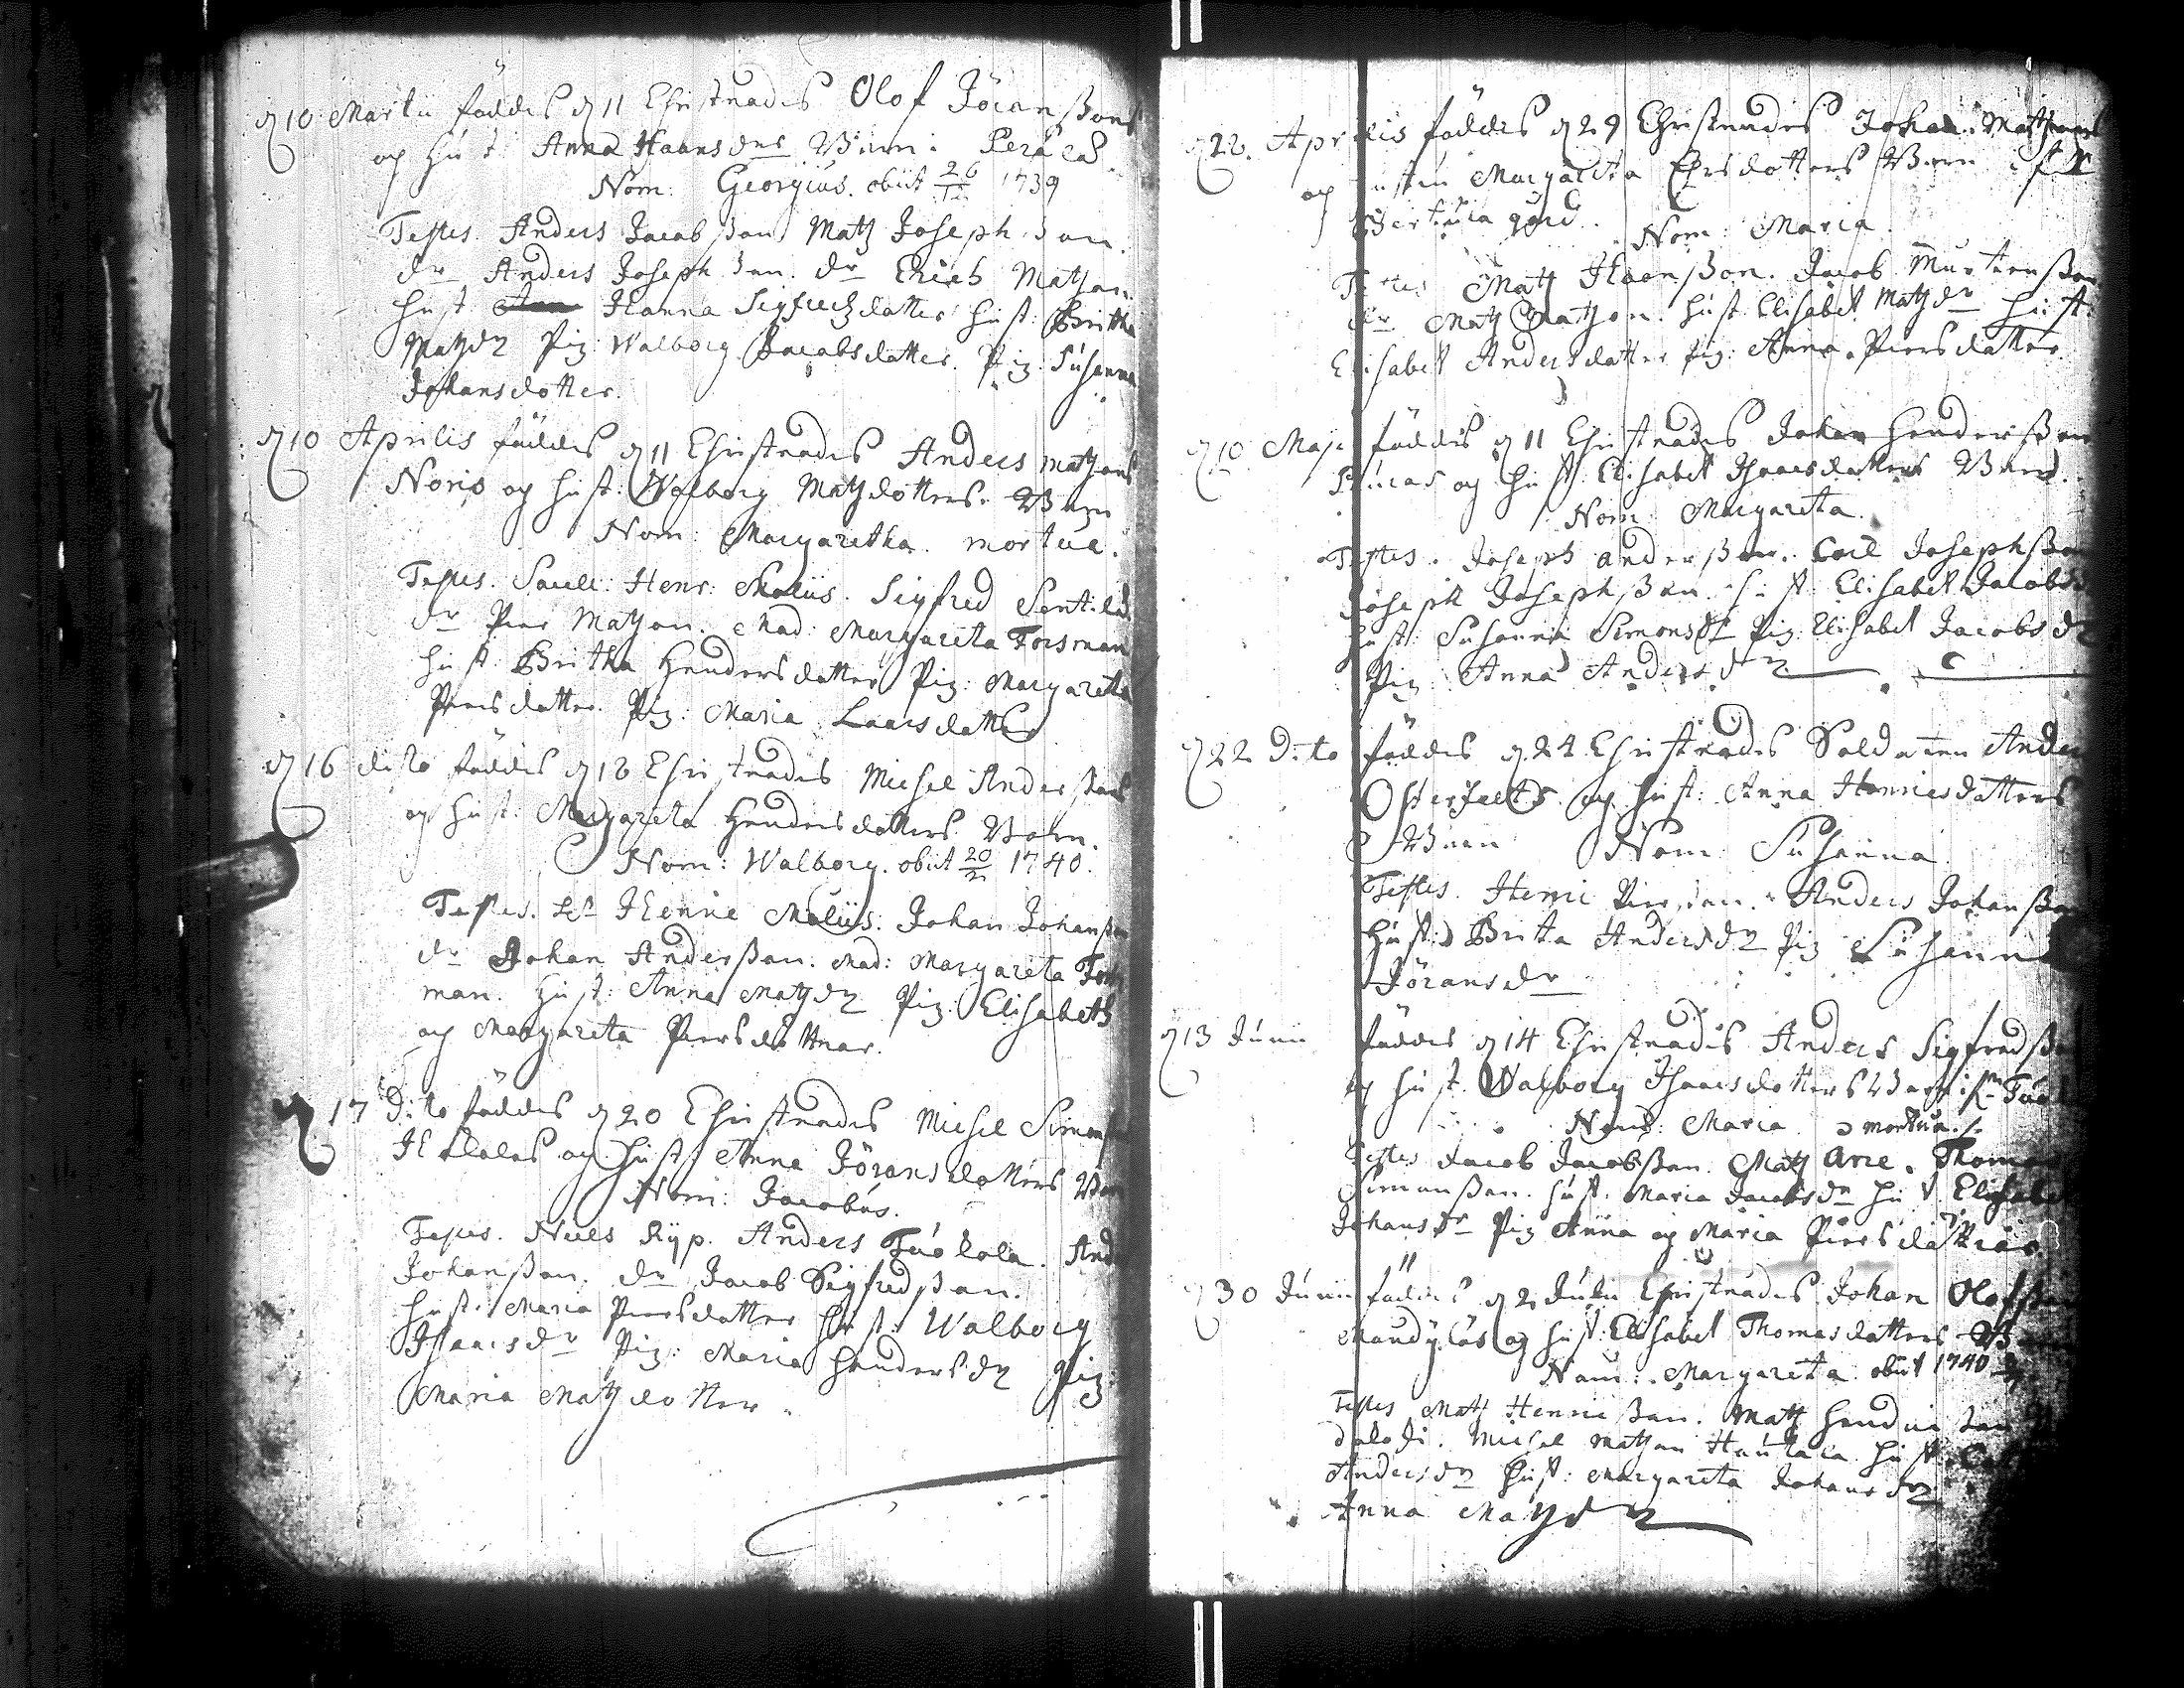 d 10 Martii föddes d 11 Christnades Olof Jöranßons
og Hust Anna Haansdrs Barn:
Nom: Georgius. obiit 26/12 1739
Testes. Anders Jacobßon Matz Josephson.
dr Anders Josephson. dr Erich Matzon
Hust Hanna Sigfredzdotter Hust: Britha
Matzdr Pig: Walborg Jacobsdotter. Pig: Susanna
Johansdotter.
d 10 Aprilis föddes d 11 Christnades Anders Matzons
Noris og Hust. Walborg Matzdotters. Barn
Nom: Margaretha. mortua.
Testes. Sacell: Henr: Malius. Sigfred
dr Pier Matzon. Mad: Margareta Forsman
Hust. Britha Hendersdotter Pig: Margareta
Piersdotter. Pig: Maria Laarsdotter
d 16 dito föddes d 18 Christnades Michel Anderßons
og Hust: Margareta Hendersdotters Barn.
Nom: Walborg. obiit 20/2 1740.
Testes. Henric Malius. Johan Johanßon
dr Johan Anderßon. Mad: Margareta Fors
man. Hust: Anna Matzdr Pig. Elisabeth
og Margareta Piersdöttrar.
d 17 Dito föddes d 20 Christnades Michel Simonß
og Hust: Anna Jöransdotters Barn
Nom: Jacobus.
Testes. Niels Ryp. Anders Tuokola. And
Johanßon. dr Jacob Sigfredßon.
Hust. Maria Piersdotter Hust: Walborg
Isaacsdr Pig: Maria Hendersdr Pig:
Maria Matzdotter.
d 22. Aprilis föddes d 29 Christnades Johan Matzons
og Hustru Margareta Ersdotters Barn
gård. Nom: Maria.
Testes Matz Haanßon. Jacob Murtenßon
dr Matz Matzon. Hust. Elisabet Matzdr Hust:
Elisabet Andersdotter Pig: Anna Piersdotter.
d 10 Maji föddes d 11 Christnades Johan Henderßon
og Hust. Elisabet Isaacsdotters Barn.
Nom: Margareta.
Testes. Joseph Anderßon. Carl Josephßon
Joseph Josephßon. Hust. Elisabet Jacobsd
Hust: Susanna Simonsdr Pig: Elisabet Jacobsdr
Pig: Anna Andersdr
d 22 Dito föddes d 24 Christnades Soldaten Ander
Osterfeldts og Hust: Anna Henricsdotters
Barn Nom: Susanna
Testes. Henric Pierson. Anders Johanßon
Hust: Brita Andersdr Pig Susanna
Jöransdr
d 13 Junii föddes d 14 Christnades Anders Sigfredßo
og Hust. Walborg Isaacsdotters Barn
Nom: Maria mortua.
Testes Jacob Jacobßon. Matz Arre. Thomas
Simonßon. Hust. Maria Jacobsdr Hust. Elisabet
Johansdr Pig Anna og Maria Piersdöttrar.
d 30 Junii föddes d 2 Julii Christnades Johan Olofßon
og Hust: Elisabet Thomasdotters B
Nom: Margareta. obiit 1740
Testes Matz Henricßon. Matz Hendricson
Michel Matzon Hautala. Hust:
Andersdr Hust: Margareta Johansdr
Anna Matzdr